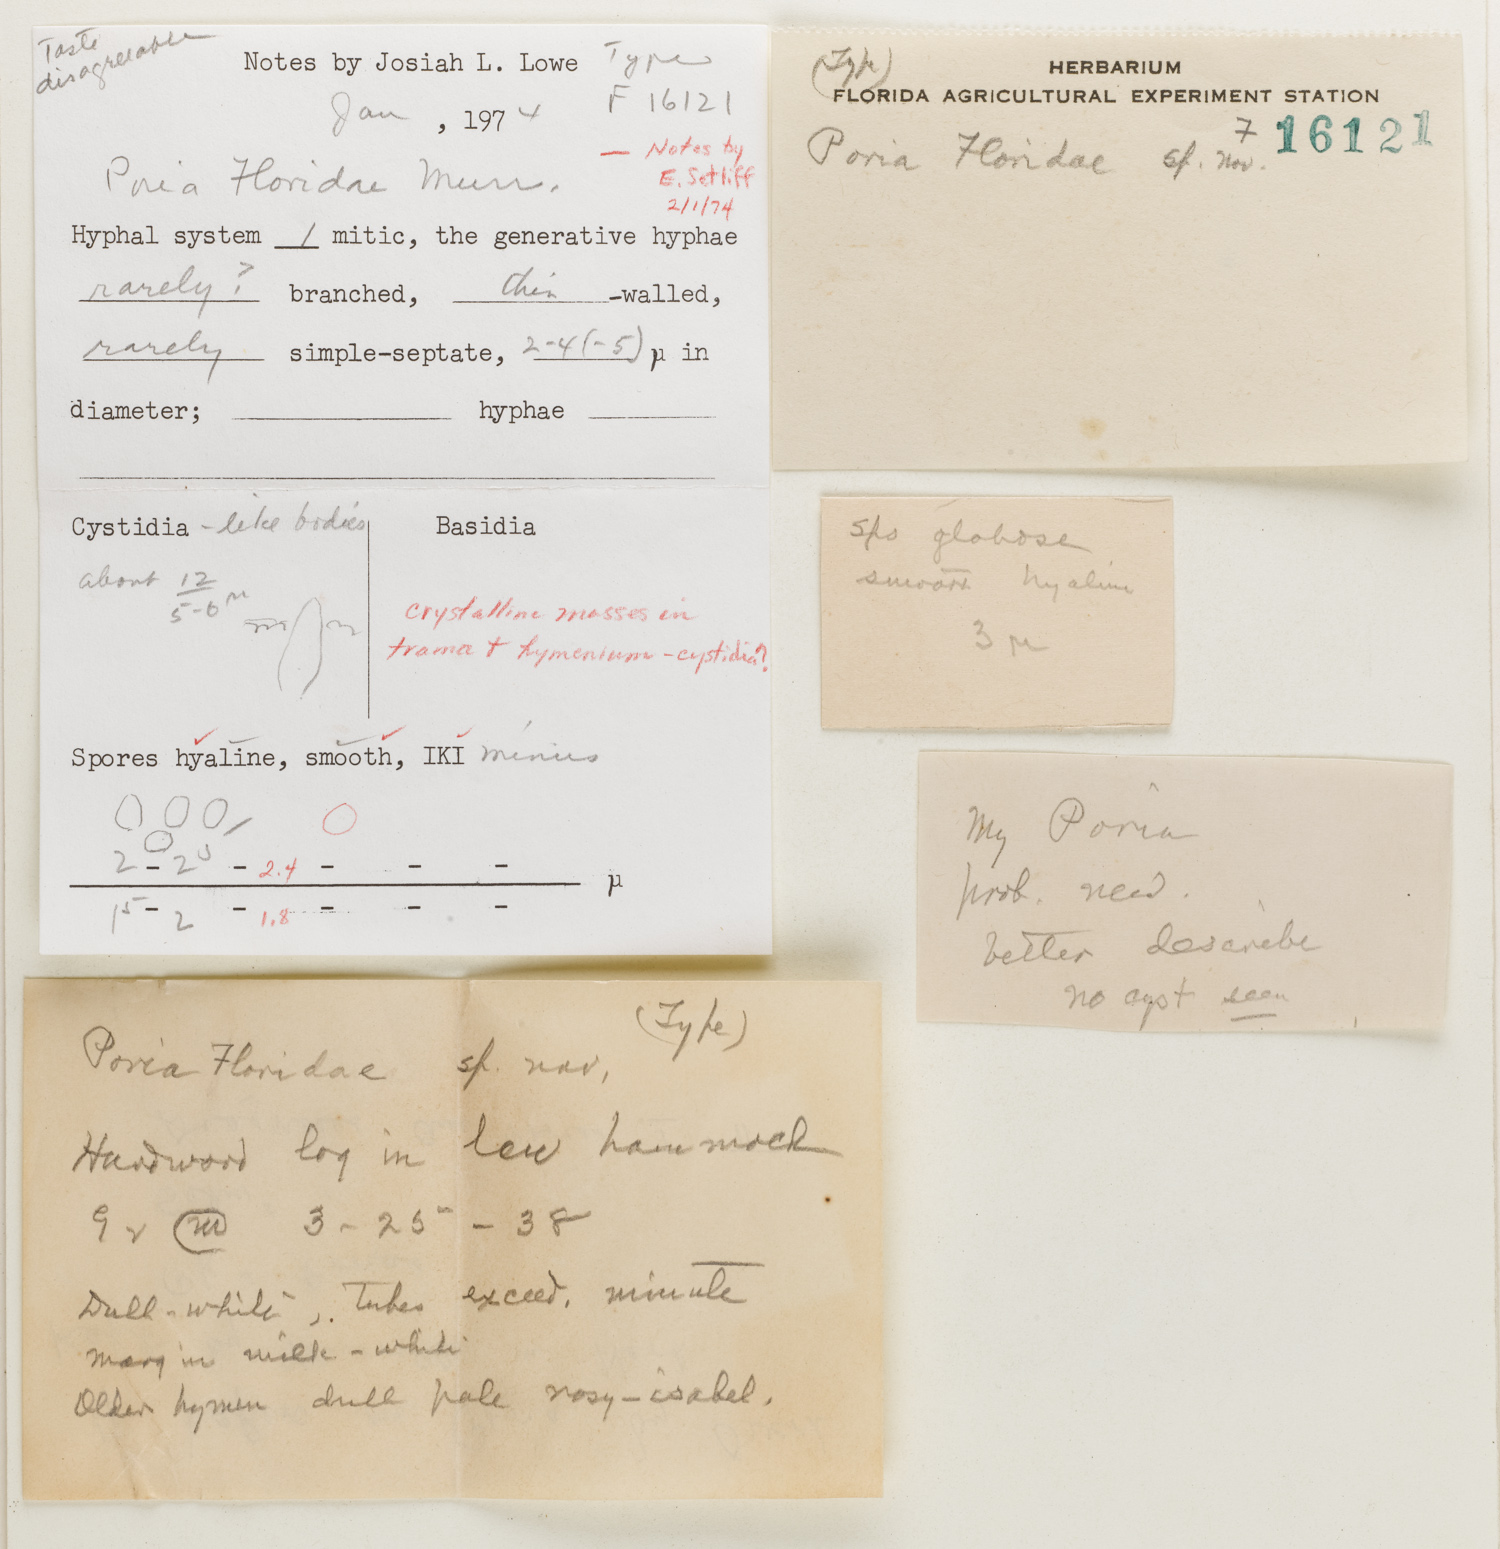 Taste
disagreeable
Notes by Josiah L. Lowe Type
Jan , 1974 F 16121
— Notes by
E. Setliff
2/1/74
Poria Floridae Murr.
Hyphal system 1 mitic, the generative hyphae
rarely? branched, thin -walled,
rarely simple-septate, 2-4(-5) µ in
diameter; hyphae
Cystidia -like bodies Basidia
about 12
5-6 µ
crystalline masses in
trama + hymenium - cystidia?
Spores hyaline, smooth, IKI minus
2 - 2⁵ - 2.4 - - -
µ
1⁵ - 2 - 1.8 - - -
(Type)
HERBARIUM
FLORIDA AGRICULTURAL EXPERIMENT STATION
F 16121
Poria Floridae sp. nov.
sps globose
smooth hyaline
3 µ
My Poria
prob. need.
better describe
no cyst seen
(Type)
Poria Floridae sp. nov.
Hardwood log in low hammock
m 3-25-38
Dull-white, tubes exceed. minute
margin milk-white
Older hymen dull pale rosy-isabel.